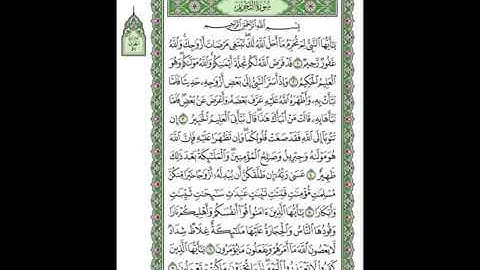 سُورَةُ التَّحْرِيمِ
بِسْمِ ٱللَّهِ ٱلرَّحْمَٰنِ ٱلرَّحِيمِ
يَٰٓأَيُّهَا ٱلنَّبِىُّ لِمَ تُحَرِّمُ مَآ أَحَلَّ ٱللَّهُ لَكَ تَبْتَغِى مَرْضَاتَ أَزْوَٰجِكَ وَٱللَّهُ
غَفُورٌ رَّحِيمٌ ١ قَدْ فَرَضَ ٱللَّهُ لَكُمْ تَحِلَّةَ أَيْمَٰنِكُمْ وَٱللَّهُ مَوْلَىٰكُمْ وَهُوَ
ٱلْعَلِيمُ ٱلْحَكِيمُ ٢ وَإِذْ أَسَرَّ ٱلنَّبِىُّ إِلَىٰ بَعْضِ أَزْوَٰجِهِۦ حَدِيثًا فَلَمَّا
نَبَّأَتْ بِهِۦ وَأَظْهَرَهُ ٱللَّهُ عَلَيْهِ عَرَّفَ بَعْضَهُۥ وَأَعْرَضَ عَنۢ بَعْضٍ فَلَمَّا
نَبَّأَهَا بِهِۦ قَالَتْ مَنْ أَنۢبَأَكَ هَٰذَا قَالَ نَبَّأَنِىَ ٱلْعَلِيمُ ٱلْخَبِيرُ ٣ إِن
تَتُوبَآ إِلَى ٱللَّهِ فَقَدْ صَغَتْ قُلُوبُكُمَا وَإِن تَظَٰهَرَا عَلَيْهِ فَإِنَّ ٱللَّهَ
هُوَ مَوْلَىٰهُ وَجِبْرِيلُ وَصَٰلِحُ ٱلْمُؤْمِنِينَ وَٱلْمَلَٰٓئِكَةُ بَعْدَ ذَٰلِكَ
ظَهِيرٌ ٤ عَسَىٰ رَبُّهُۥٓ إِن طَلَّقَكُنَّ أَن يُبْدِلَهُۥٓ أَزْوَٰجًا خَيْرًا مِّنكُنَّ
مُسْلِمَٰتٍ مُّؤْمِنَٰتٍ قَٰنِتَٰتٍ تَٰٓئِبَٰتٍ عَٰبِدَٰتٍ سَٰٓئِحَٰتٍ ثَيِّبَٰتٍ
وَأَبْكَارًا ٥ يَٰٓأَيُّهَا ٱلَّذِينَ ءَامَنُوا۟ قُوٓا۟ أَنفُسَكُمْ وَأَهْلِيكُمْ نَارًا
وَقُودُهَا ٱلنَّاسُ وَٱلْحِجَارَةُ عَلَيْهَا مَلَٰٓئِكَةٌ غِلَاظٌ شِدَادٌ
لَّا يَعْصُونَ ٱللَّهَ مَآ أَمَرَهُمْ وَيَفْعَلُونَ مَا يُؤْمَرُونَ ٦ يَٰٓأَيُّهَا ٱلَّذِينَ
كَفَرُوا۟ لَا تَعْتَذِرُوا۟ ٱلْيَوْمَ إِنَّمَا تُجْزَوْنَ مَا كُنتُمْ تَعْمَلُونَ ٧